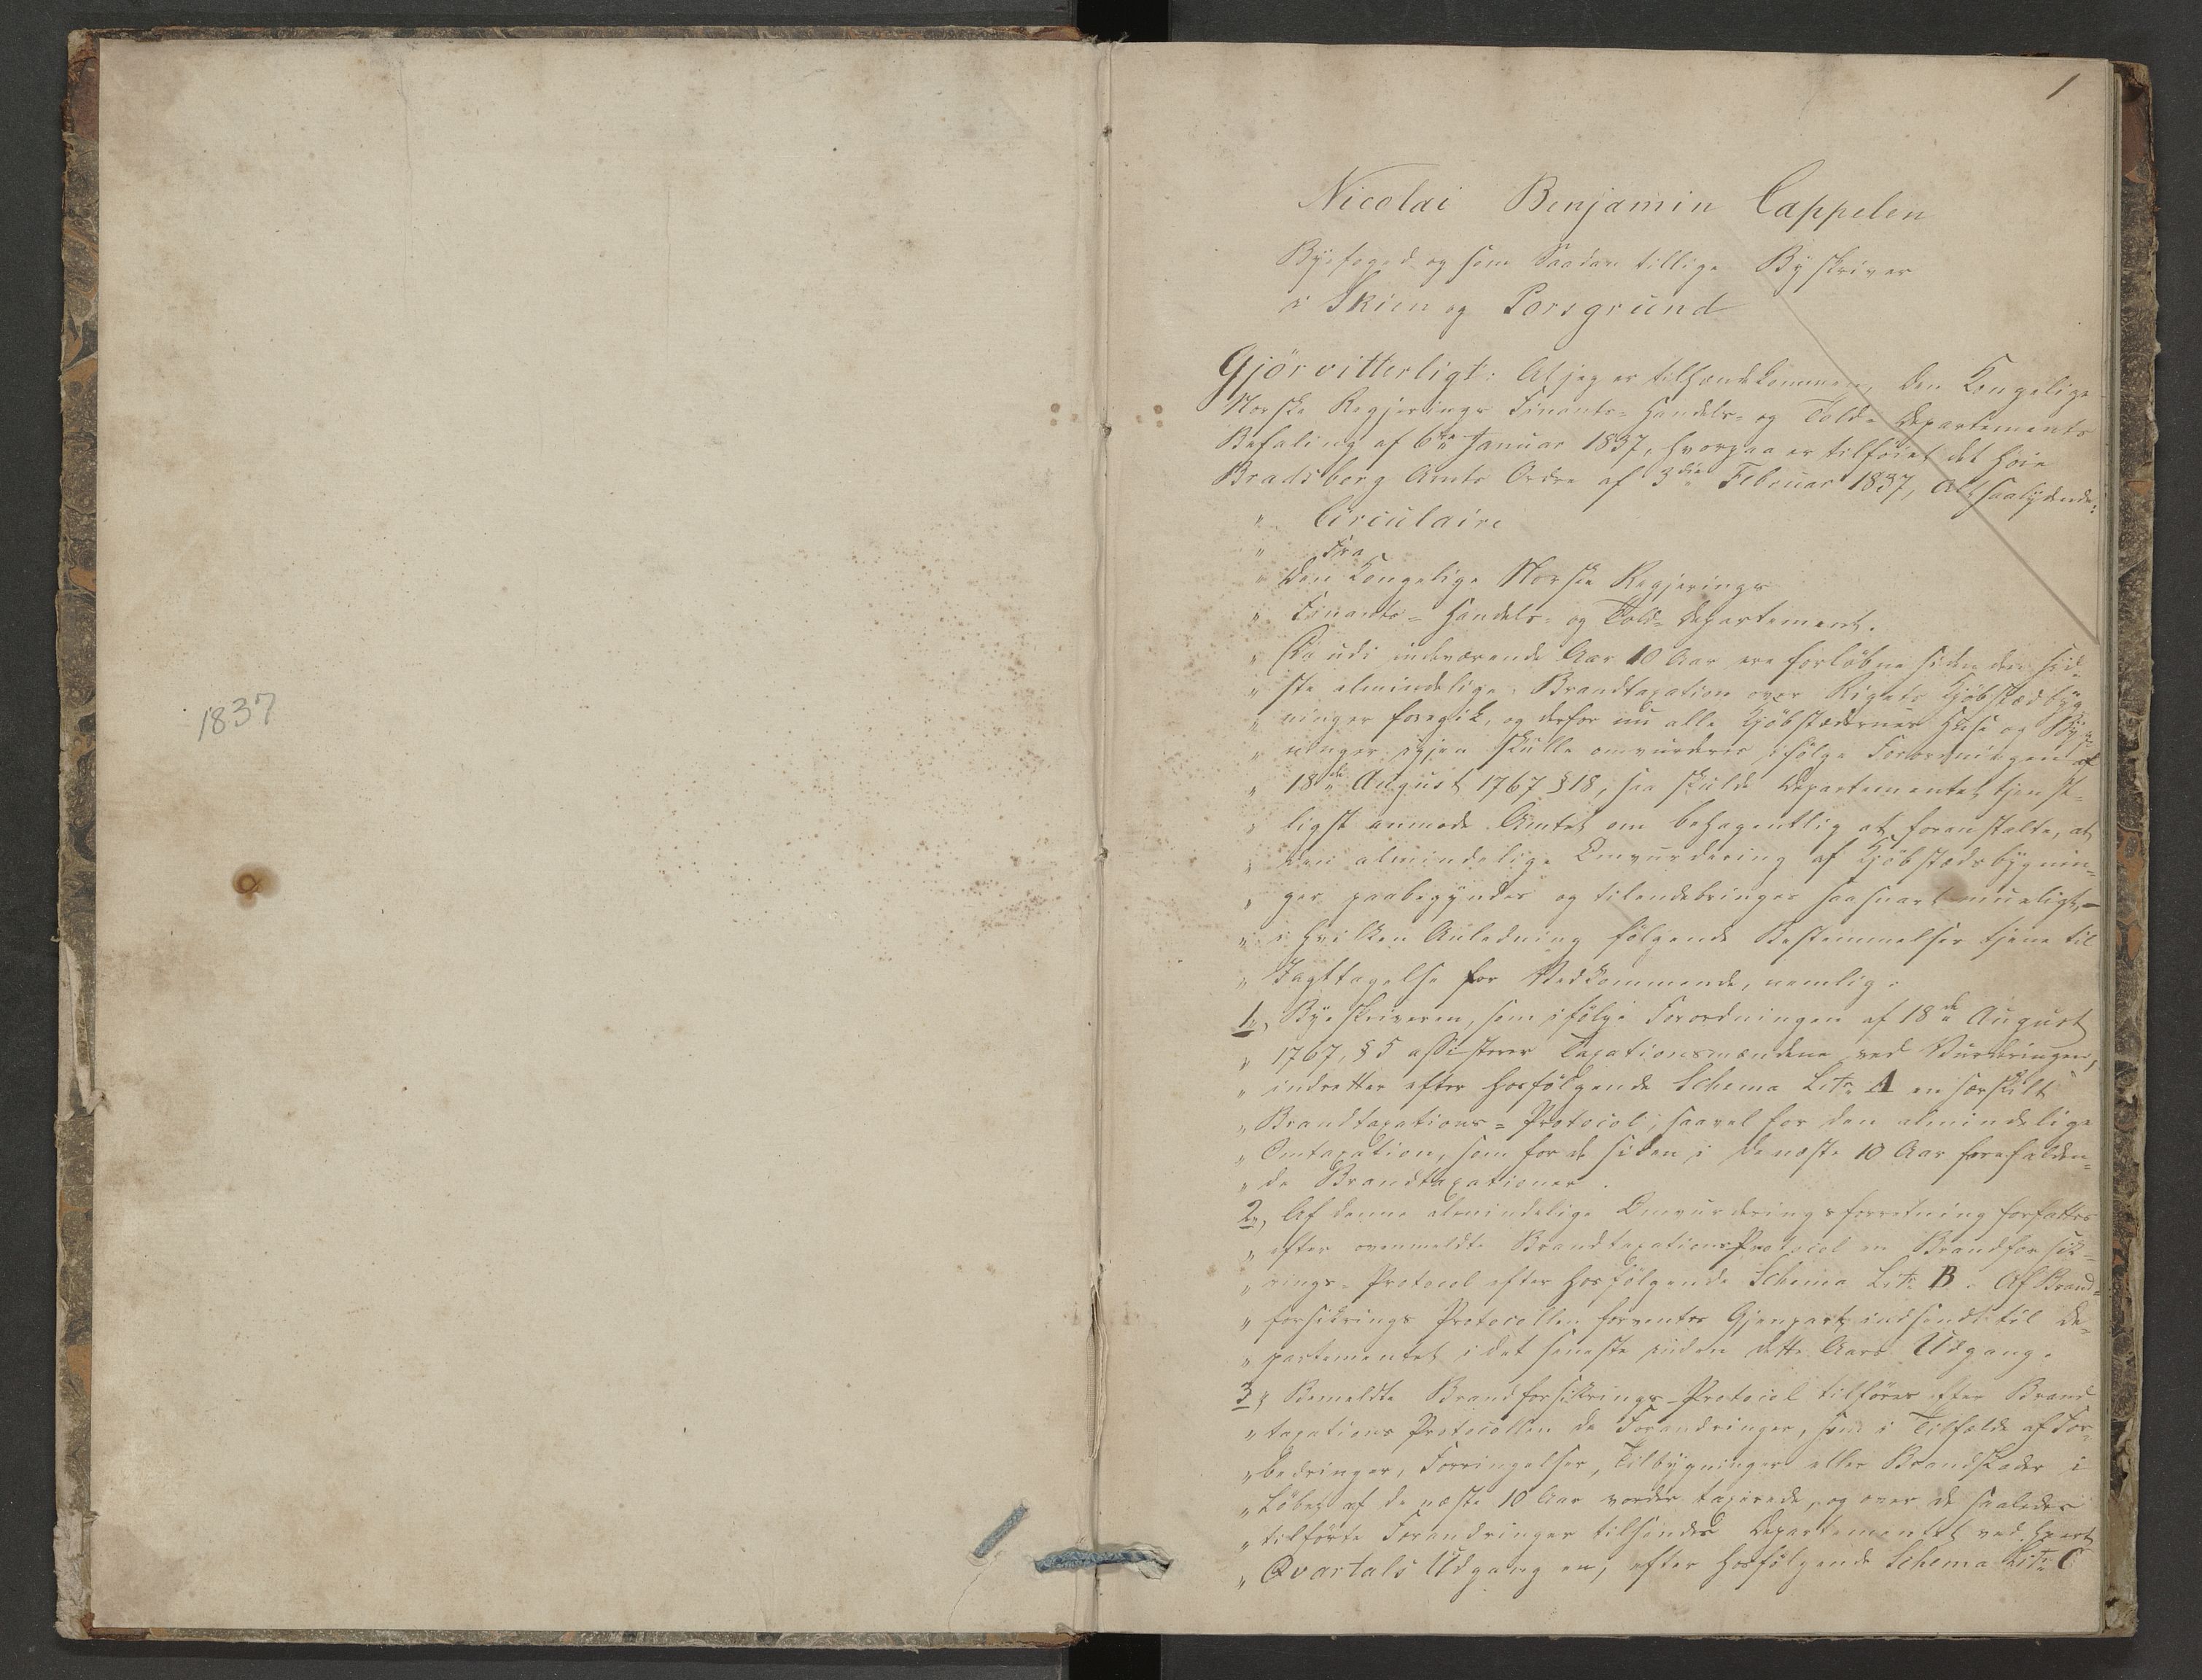 1837
1
Nicolai Benjamin Cappelen
Byefoged og som Saadan tillige Byskriver
i Skien og Porsgrund
Gjör vitterligt: At jeg er tilhændekommen, den Kongelige
Norske Regjerings Finants- Handels- og Told- Departements
Befaling af 6te Januar 1837, hvorpaa er tilföiet det Höie
Bradsberg Amts Ordre af 3die Februar 1837, Alt saalydende:
" Circulaire
" Fra
" Den Kongelige Norske Regjerings
" Finants- Handels- og Told- Departement.
" Da udi indeværende Aar 10 Aar ere forlöbne siden den sid-
" ste almindelige Brandtaxation over Rigets Kjöbstædbyg-
" ninger foregik, og derfor nu alle Kjöbstædernes Huse og Byg-
" ninger igjen skulle omvurderes ifölge Forordningen af
" 18de August 1767 § 18, saa skulde Departementet tjenst-
" ligst anmode Amtet om behagentlig at foranstalte, at
" den almindelige Omvurdering af Kjöbstædsbygnin-
" ger paabegyndes og tilendebringes saasnart mueligt,-
" i hvilken Anledning fölgende Bestemmelser tjene til
" Iagttagelse for Vedkommende, nemlig:
1, Byeskriveren, som ifölge Forordningen af 18de August
" 1767, § 5 assisterer Taxationsmændene ved Vurderingen,
" indretter efter hosfölgende Schema Litr. A en særskilt
" Brandtaxations- Protocol, saavel for den almindelige
" Omtaxation, som for de siden i de næste 10 Aar forefalden-
" de Brandtaxationer.
2, Af denne almindelige Omvurderingsforretning forfattes
" efter ovenmeldte BrandtaxationsProtocol en Brandforsik-
" rings- Protocol efter hosfölgende Schema Litr. B. Af Brand-
" forsikrings Protocollen forventes Gjenpart indsendt til De-
" partementet i det seneste inden dette Aars Udgang.
3, Bemeldte Brandforsikrings-Protocol tilföres efter Brand-
" taxations Protocollen de Forandringer, som i Tilfælde af For-
" bedringer, Forringelser, Tilbygninger eller Brandskader i
" Löbet af de næste 10 Aar vorder taxerede, og over de saaledes
" tilförte Forandringer tilsendes Departementet ved hvert
" Qvartals Udgang en, efter hosfölgende Schema Litr. C